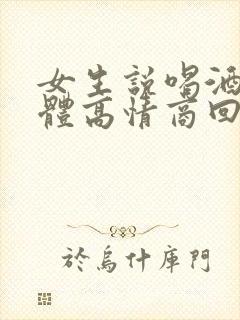 女生說喝酒
體高情商回
於烏什庫門